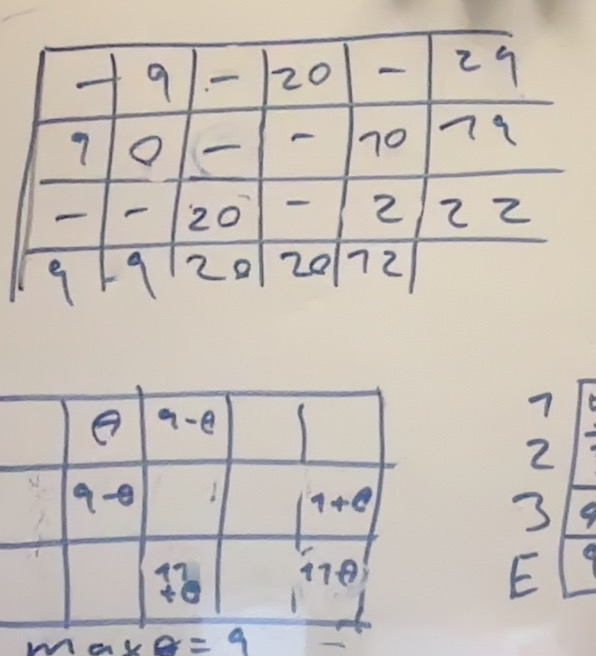 - 9 - 20 - 29
9 0 - - 10 19
- - 20 - 2 22
9 9 20 20 12
θ 9-θ
9-θ 1+θ
11+θ 11-θ
max θ = 9
1
2
3
E